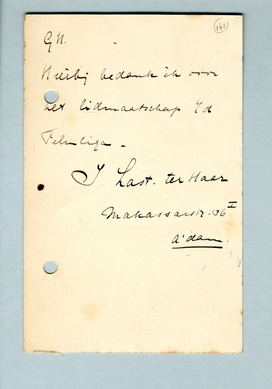 161
G.N.
Hierbij bedank ik voor
het lidmaatschap d
Filmliga.
J. Last. ter Haar
Makassarstr. 36 I
A'dam.